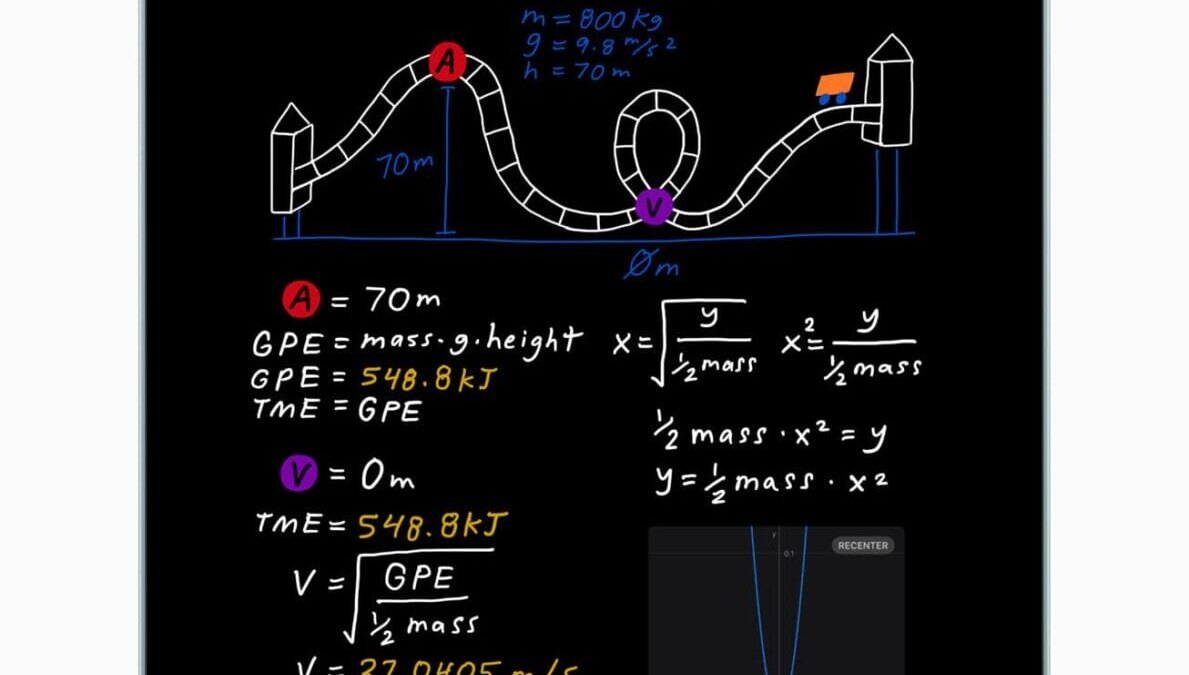 m = 800 kg
g = 9.8 m/s²
h = 70 m
A
70m
V
0m
A = 70m
GPE = mass·g·height
GPE = 548.8kJ
TME = GPE
V = 0m
TME = 548.8kJ
V = √(GPE / ½ mass)
V = 37.0405 m/s
x = √(y / ½ mass)
x² = y / ½ mass
½ mass · x² = y
y = ½ mass · x²
y
0.1
RECENTER